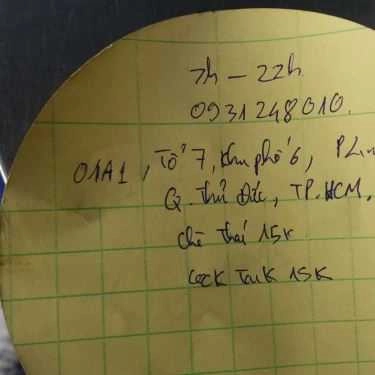 7h - 22h
0931248010.
01A1, Tổ 7, khu phố 6,
Q. Thủ Đức, TP. HCM,
chè Thái 15k
cock Tail 15K